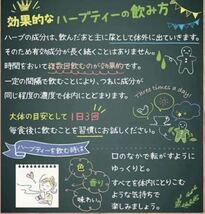 効果的なハーブティーの飲み方
ハーブの成分は、飲んだあと主に尿として体外に出ていきます。
そのため有効成分が長く続くことはありません。
時間をおいて複数回飲むのが効果的です。
一定の間隔で飲むことにより、つねに成分が
同じ程度の濃度で体内にとどまります。
Three times a day!
大体の目安として1日3回
毎食後に飲むことを習慣にお試しください。
ハーブティーを飲む時は
口のなかで転がすように
ゆっくりと。
色
香り
味わい
すべてを体内にとりこむ
ような気持ちで
楽しみましょう。